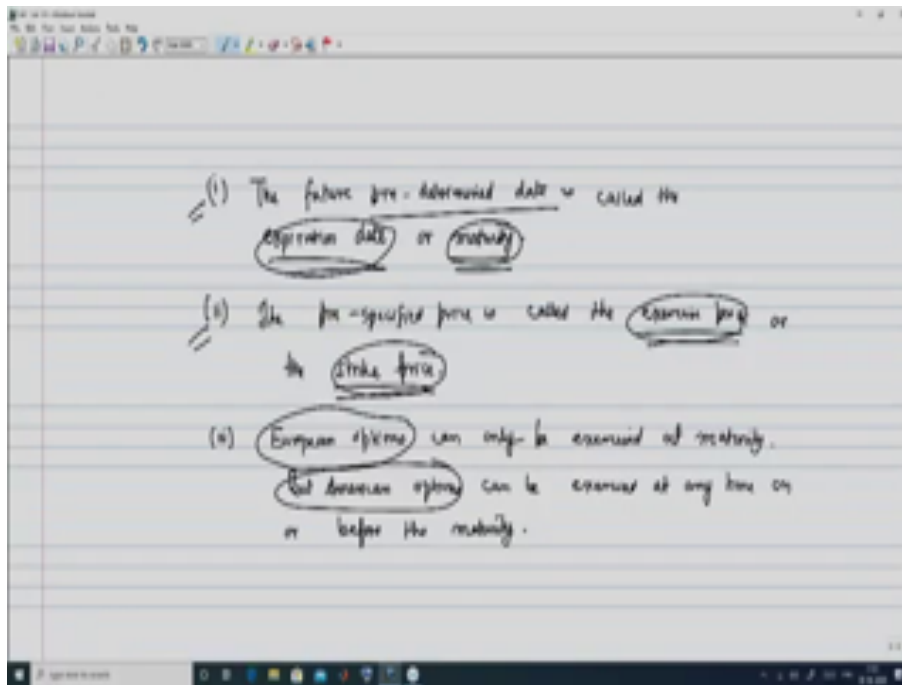 (i) The future pre-determined date is called the
expiration date or maturity
(ii) The pre-specified price is called the exercise price or
the strike price
European options can only be exercised at maturity.
But American options can be exercised at any time on
or before the maturity.